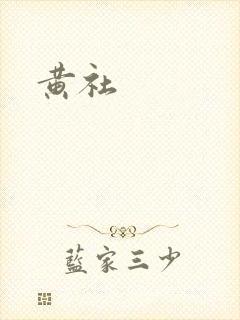 黄社
藍家三少